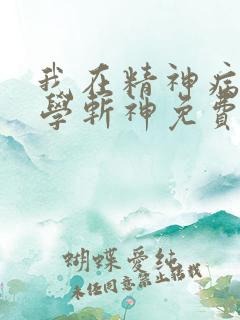 我在精神病
學斬神免費
蝴蝶愛純
未经同意禁止转载